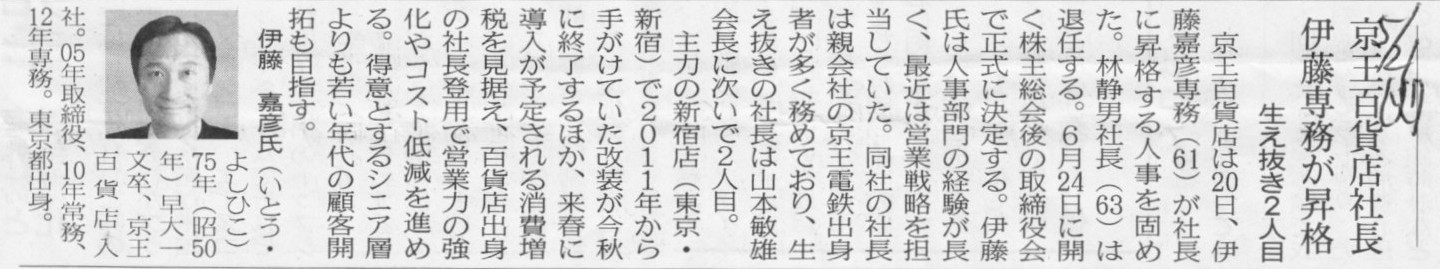 京王百貨店社長
伊藤専務が昇格
生え抜き2人目
5/21
京王百貨店は20日、伊
藤嘉彦専務（61）が社長
に昇格する人事を固め
た。林静男社長（63）は
退任する。6月24日に開
く株主総会後の取締役会
で正式に決定する。伊藤
氏は人事部門の経験が長
く、最近は営業戦略を担
当していた。同社の社長
は親会社の京王電鉄出身
者が多く務めており、生
え抜きの社長は山本敏雄
会長に次いで2人目。
主力の新宿店（東京・
新宿）で2011年から
手がけていた改装が今秋
に終了するほか、来春に
導入が予定される消費増
税を見据え、百貨店出身
の社長登用で営業力の強
化やコスト低減を進め
る。得意とするシニア層
よりも若い年代の顧客開
拓も目指す。
伊藤　嘉彦氏（いとう・
よしひこ）
75年（昭50
年）早大一
文卒、京王
百貨店入
社。05年取締役、10年常務、
12年専務。東京都出身。